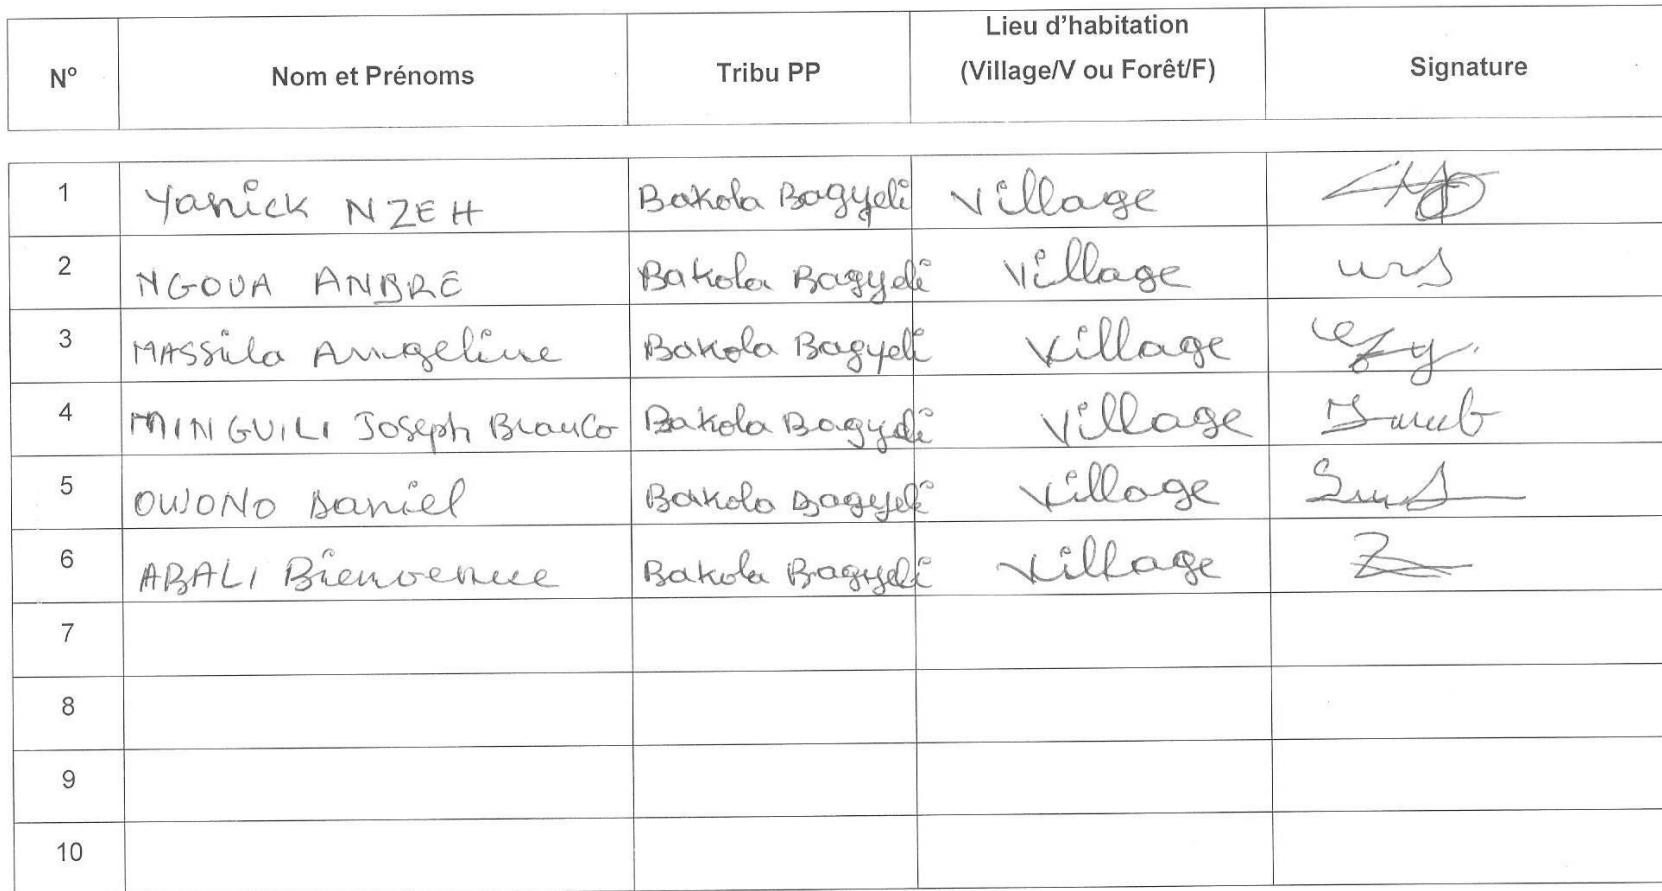 N° Nom et Prénoms Tribu PP Lieu d'habitation (Village/V ou Forêt/F) Signature
1 Yanick NZEH Bakola Bagyeli Village
2 NGOUA ANDRE Bakola Bagyeli Village
3 MASSila Angeline Bakola Bagyeli Village
4 MINGUILI Joseph Branco Bakola Bagyeli Village
5 OWONO Daniel Bakola Bagyeli Village
6 ABALI Bienvenue Bakola Bagyeli Village
7
8
9
10